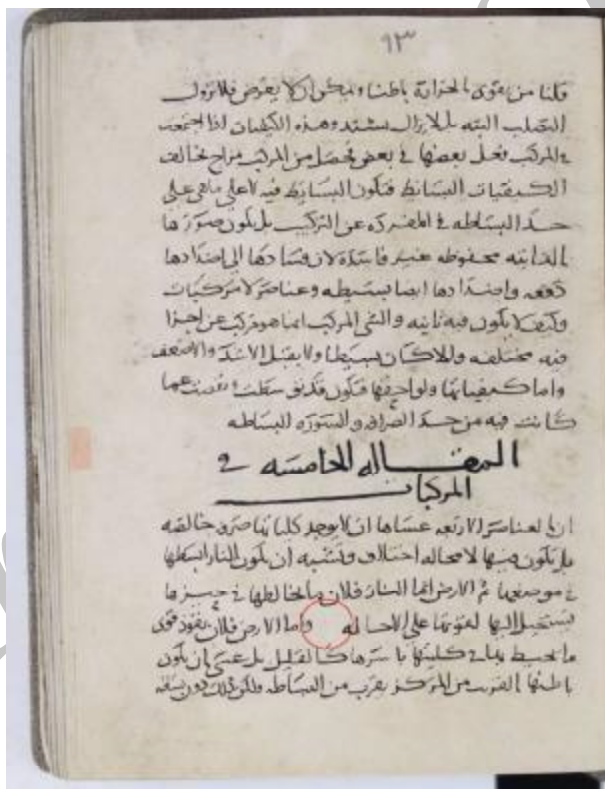 ٩٣
قلنا من يقوى الحرارة باطنا ويمكن ان لا يعرض فلا تزول
التصلب البته بل لا يزال يشتد وهذه الكيفيات اذا اجتمعت
في المركب فعل بعضها في بعض فحصل من المركب مزاج مخالف
الكيفيات البسائط فتكون البسائط فيه لا على ما هي على
حد البساطه في المفرده عن التركيب بل يكون صورها
الذاتيه محفوظه غير فاسدة لان فسادها الى اضدادها
دفعه واضدادها ايضا بسيطه وعناصر لا مركبات
وكيف لا يكون فيه ثابته والشي المركب انما هو مركب عن اجزا
فيه مختلفه والا كان بسيطا ولا يقبل الاشد والاضعف
واما كيفياتها ولواحقها فتكون قد توسطت ونقصت عما
كانت فيه من حد الصرافه والسوره البساطه
المقاله الخامسه في
المركبات
ان العناصر الاربعه عساها ان لا يوجد كلياتها صرفه خالصه
بل يكون فيها لا محاله اختلاط ويشبه ان يكون النار ابسطها
في موضعها ثم الارض اما النار فلان ما يخالطها في حيزها
يستحيل اليها لقوتها على الاحاله واما الارض فلان نفوذ قوى
ما يحيط بها في كليتها باسرها كالقليل بل عسى ان يكون
باطنها القريب من المركز يقرب من البساطه ولكن ذلك دون